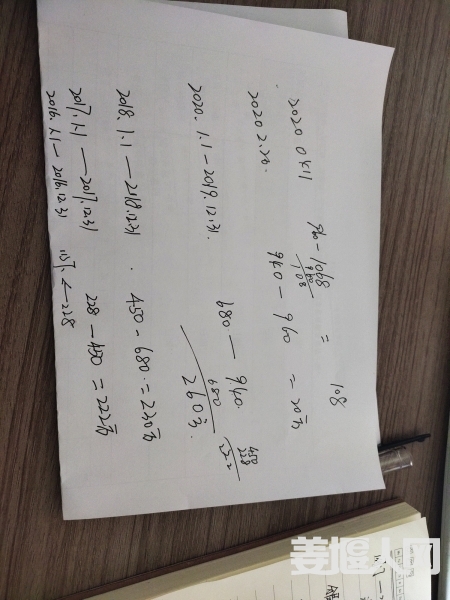 2020 0411 960 - 1068 = 108
960
108
2020 2.28. 940 - 960 = 20方
2020. 1.1 - 2019.12.31. 680 — 940.
680
260方.
450
228
222
2018. 1.1 — 2018.12.31. 450 - 680. = 230方
2017.1.1 — 2017.12.31 228 - 450 = 222方
2016.1.1 — 2016.12.31 ← 228
姜堰人网